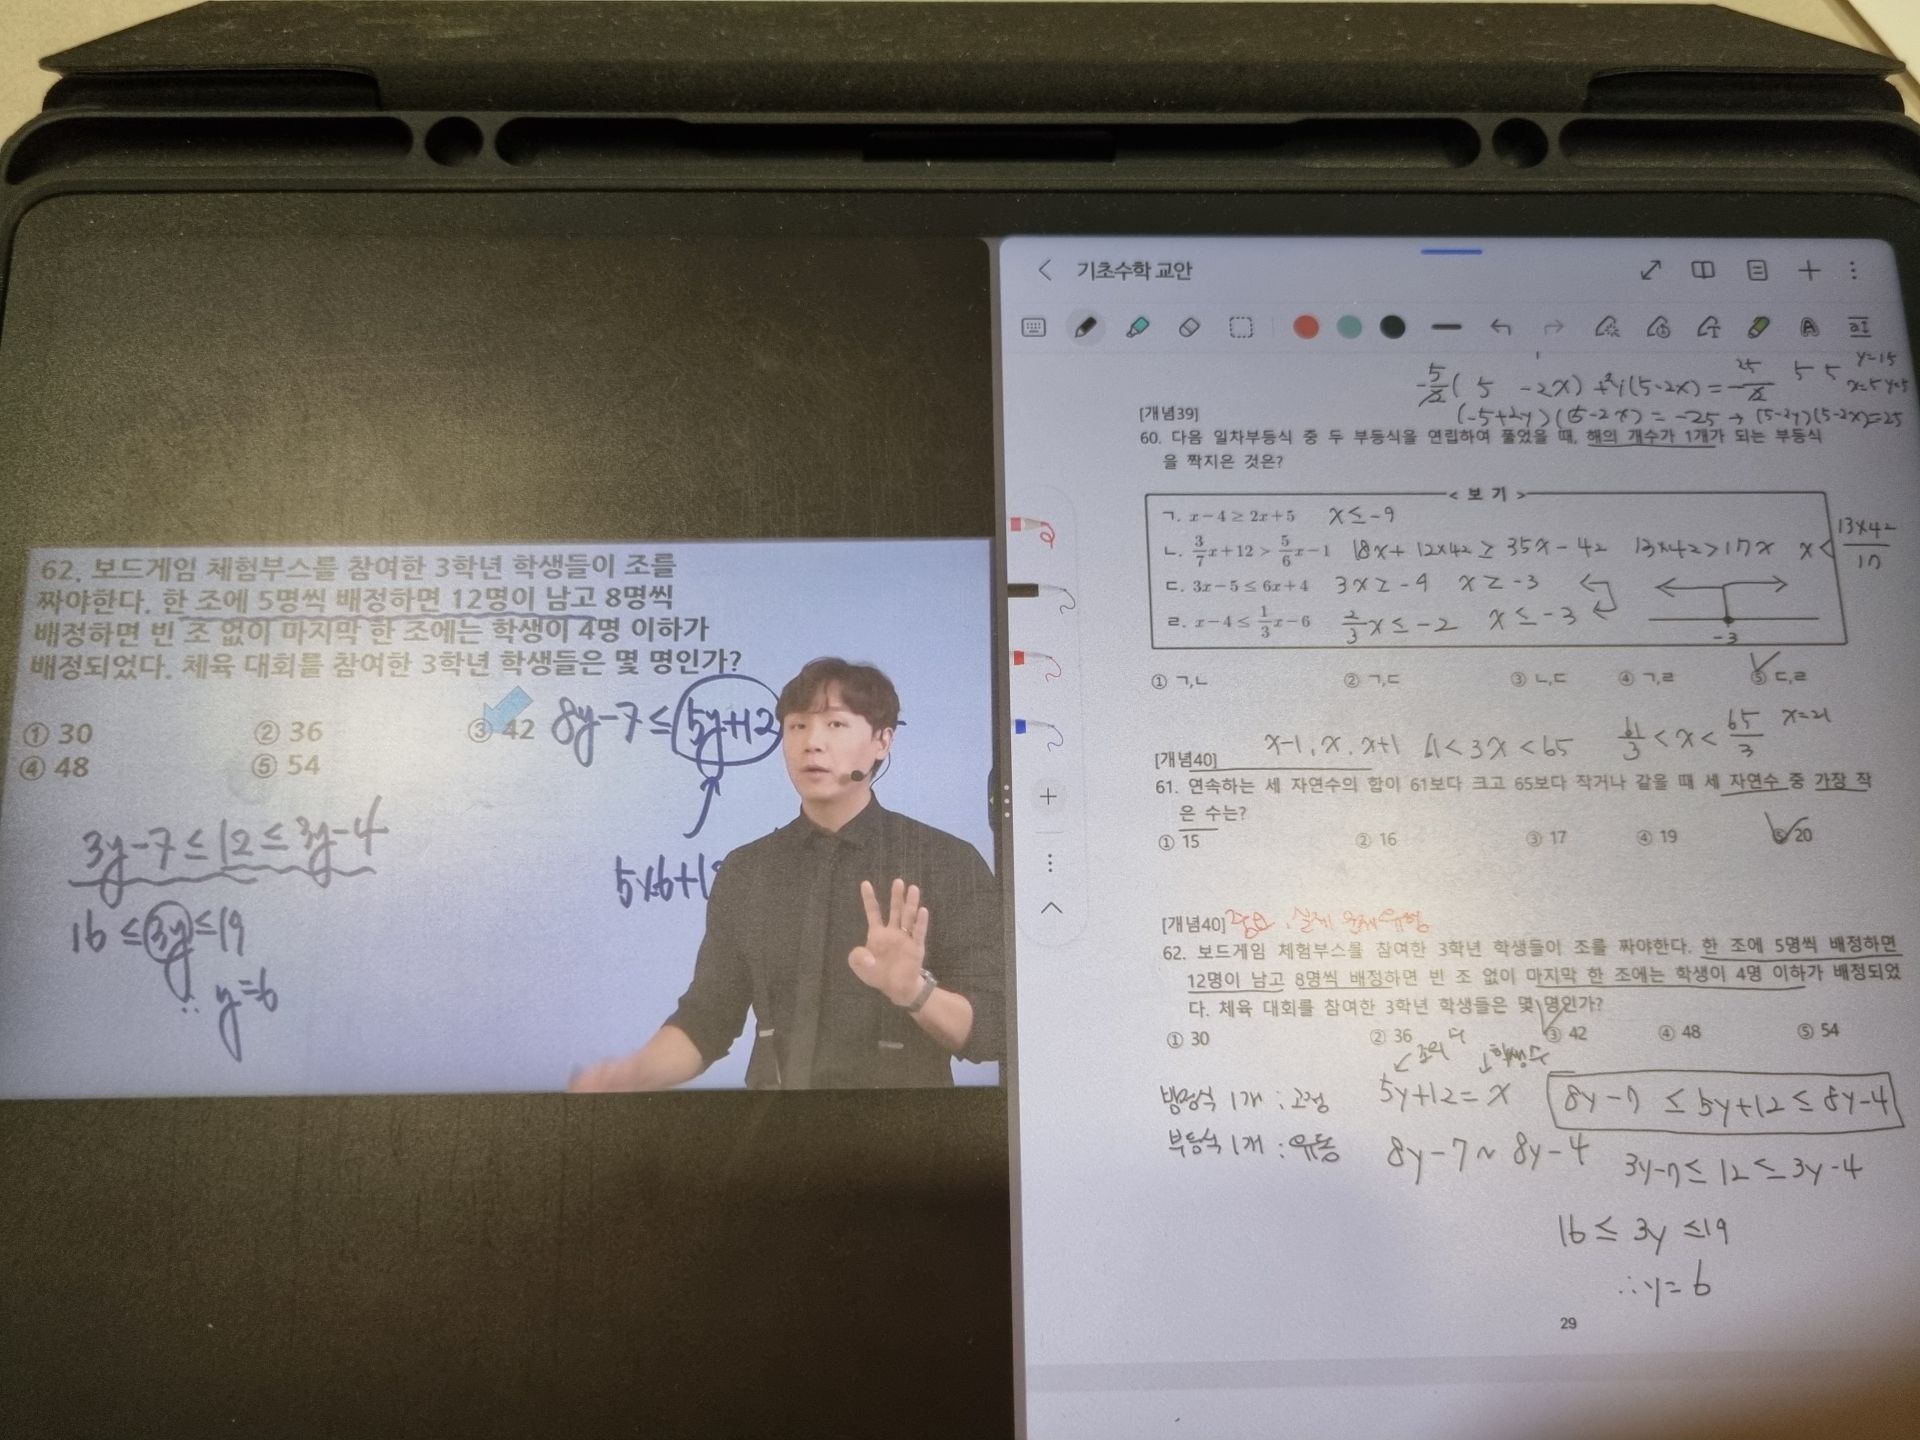 62. 보드게임 체험부스를 참여한 3학년 학생들이 조를
짜야한다. 한 조에 5명씩 배정하면 12명이 남고 8명씩
배정하면 빈 조 없이 마지막 한 조에는 학생이 4명 이하가
배정되었다. 체육 대회를 참여한 3학년 학생들은 몇 명인가?
① 30 ② 36 ③ 42
④ 48 ⑤ 54
8y-7≤5y+12
5×6+1
3y-7≤12≤3y-4
16≤3y≤19
∴ y=6
기초수학 교안
y=15
-5/2( 5 -2x) +2y(5-2x) = -25/2 5 5
(-5+2y)(5-2x) = -25 → (5-2y)(5-2x)=25
[개념39]
60. 다음 일차부등식 중 두 부등식을 연립하여 풀었을 때, 해의 개수가 1개가 되는 부등식
을 짝지은 것은?
< 보 기 >
ㄱ. x-4≥2x+5 x≤-9
ㄴ. 3/7x+12 > 5/6x-1 18x+12×42≥35x-42 13×42>17x x< 13×42/17
ㄷ. 3x-5≤6x+4 3x≥-9 x≥-3
ㄹ. x-4≤1/3x-6 2/3x≤-2 x≤-3
-3
① ㄱ,ㄴ ② ㄱ,ㄷ ③ ㄴ,ㄷ ④ ㄱ,ㄹ ⑤ ㄷ,ㄹ
x-1, x, x+1 61<3x<65 61/3<x<65/3 x=21
[개념40]
61. 연속하는 세 자연수의 합이 61보다 크고 65보다 작거나 같을 때 세 자연수 중 가장 작
은 수는?
① 15 ② 16 ③ 17 ④ 19 ⑤ 20
[개념40] 중요, 실제 문제유형
62. 보드게임 체험부스를 참여한 3학년 학생들이 조를 짜야한다. 한 조에 5명씩 배정하면
12명이 남고 8명씩 배정하면 빈 조 없이 마지막 한 조에는 학생이 4명 이하가 배정되었
다. 체육 대회를 참여한 3학년 학생들은 몇 명인가?
① 30 ② 36 ③ 42 ④ 48 ⑤ 54
조의 수 학생수
방정식 1개 : 고정 5y+12=x 8y-7≤5y+12≤8y-4
부등식 1개 : 유동 8y-7~8y-4 3y-7≤12≤3y-4
16≤3y≤19
∴y=6
29